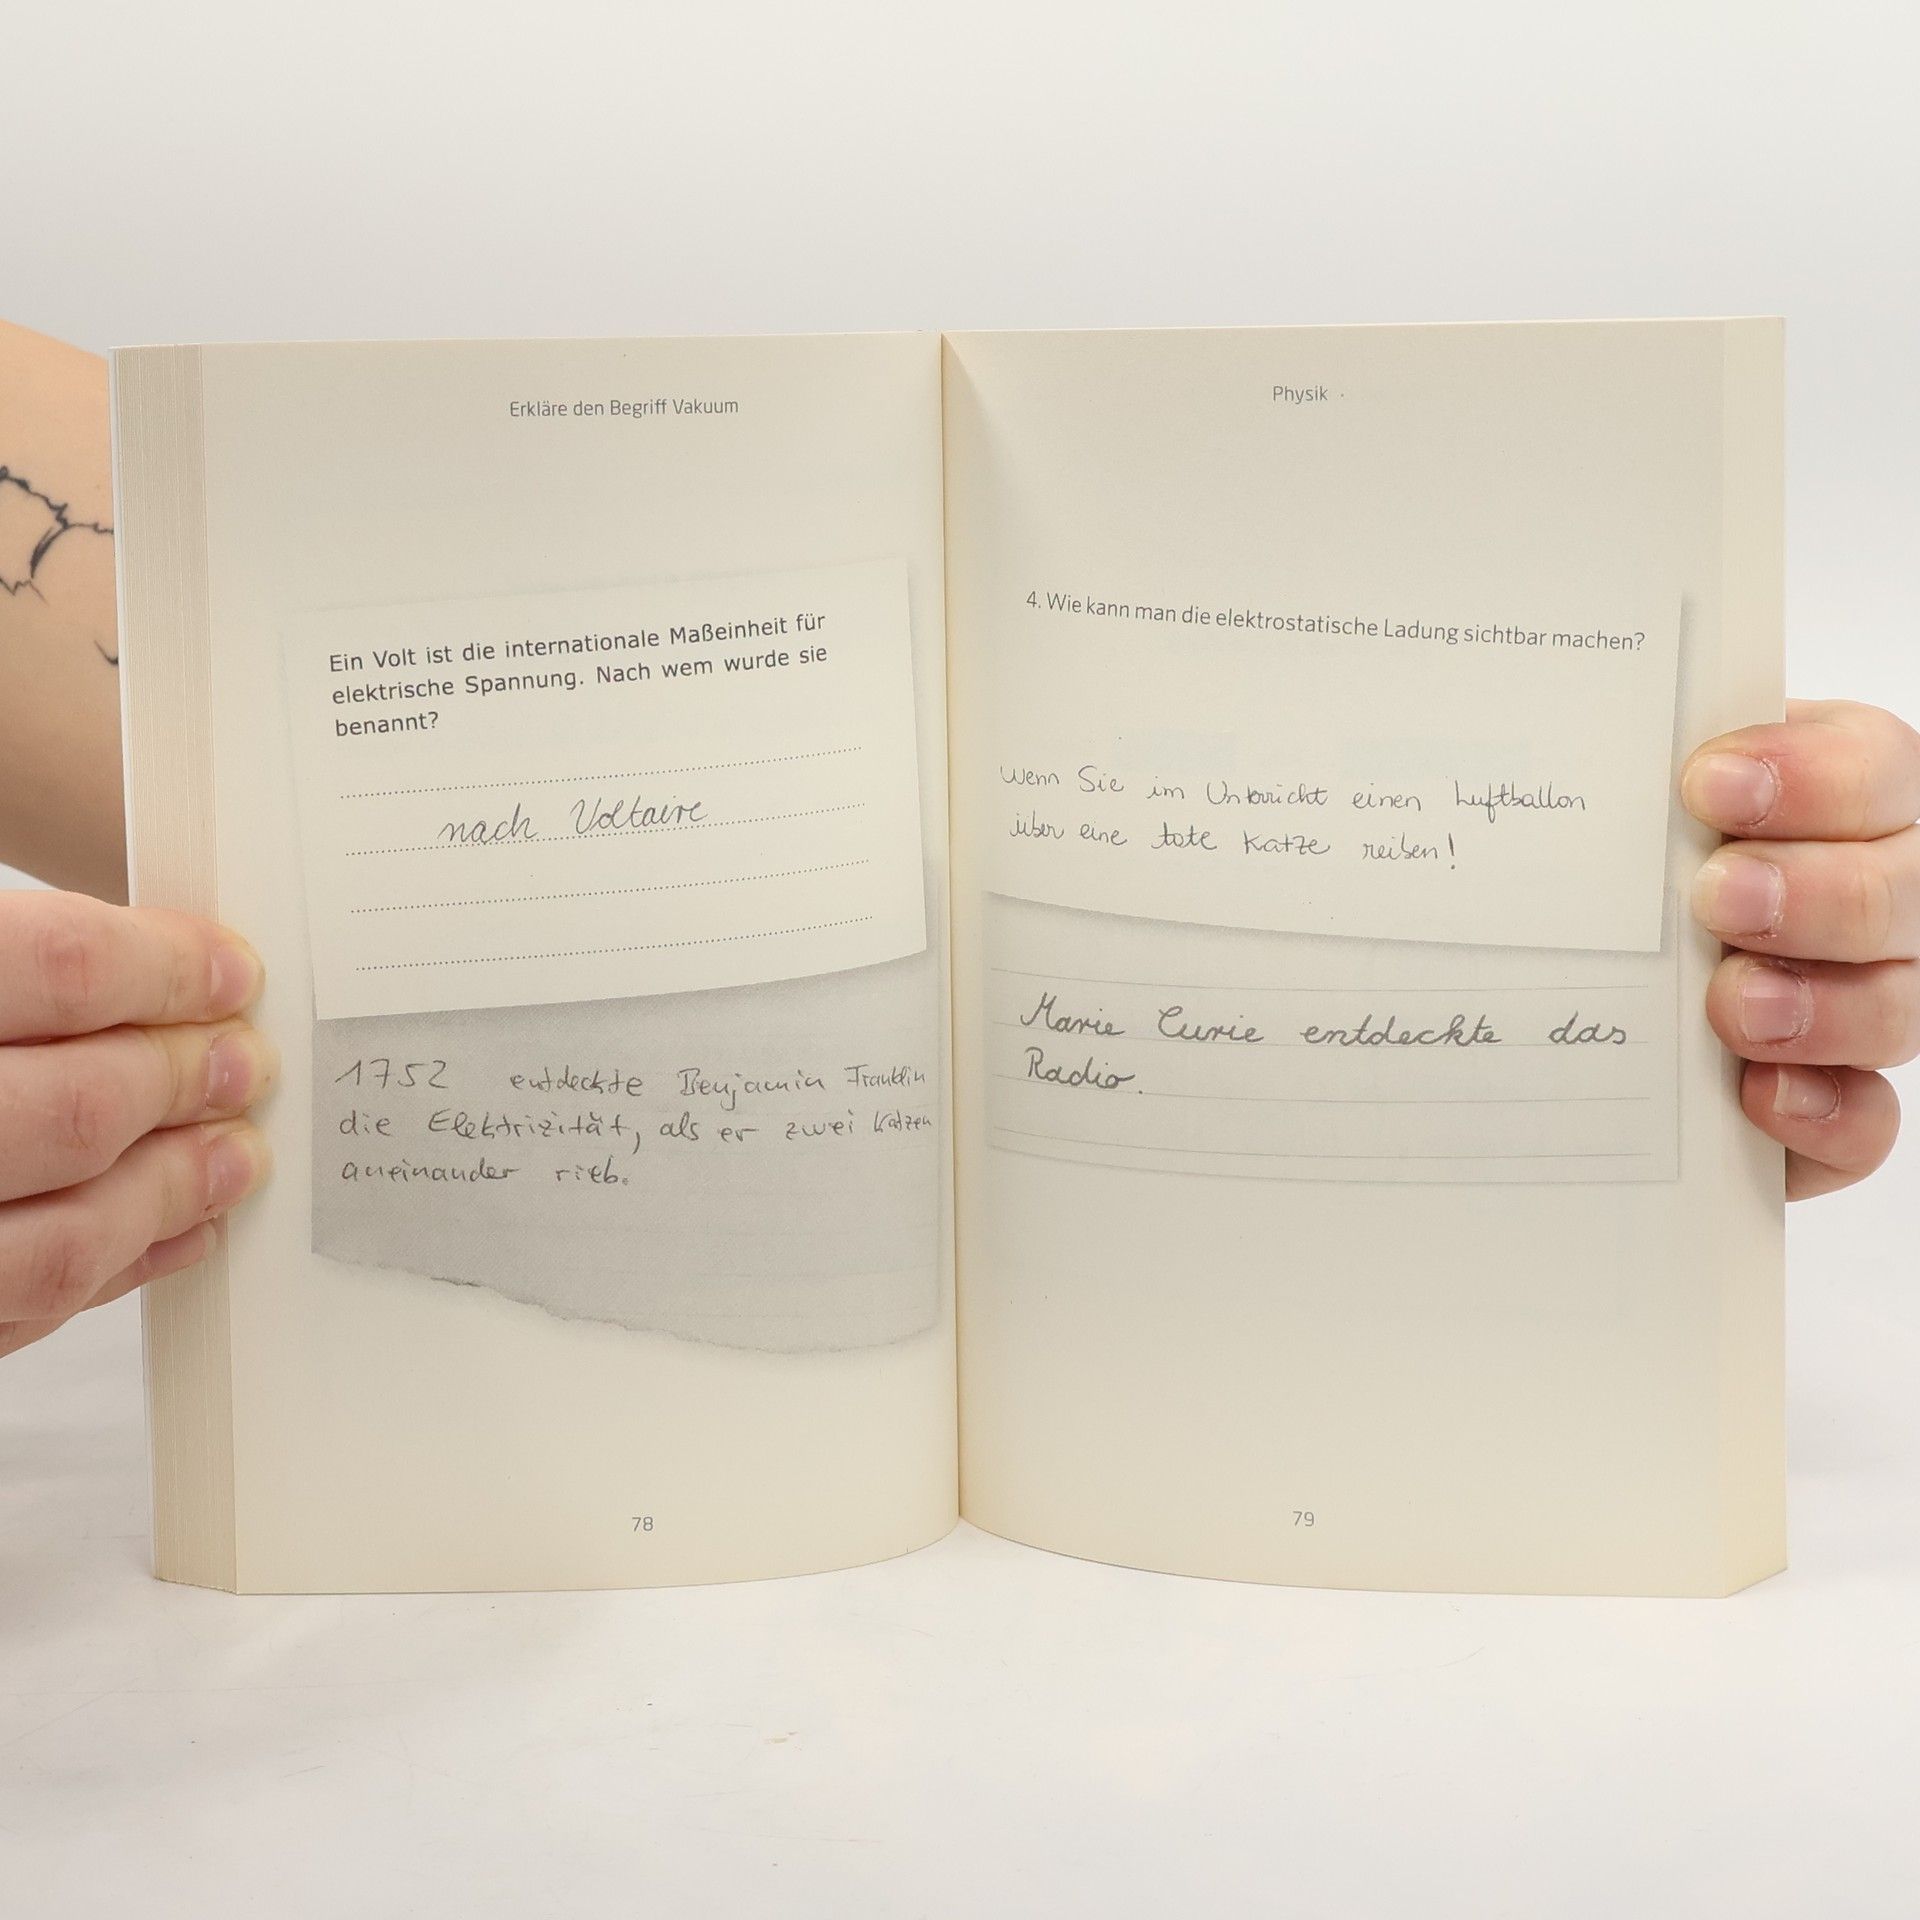 Erkläre den Begriff Vakuum
Ein Volt ist die internationale Maßeinheit für
elektrische Spannung. Nach wem wurde sie
benannt?
nach Voltaire
1752 entdeckte Benjamin Franklin
die Elektrizität, als er zwei Katzen
aneinander rieb.
78
Physik
4. Wie kann man die elektrostatische Ladung sichtbar machen?
Wenn Sie im Unterricht einen Luftballon
über eine tote Katze reiben!
Marie Curie entdeckte das
Radio.
79